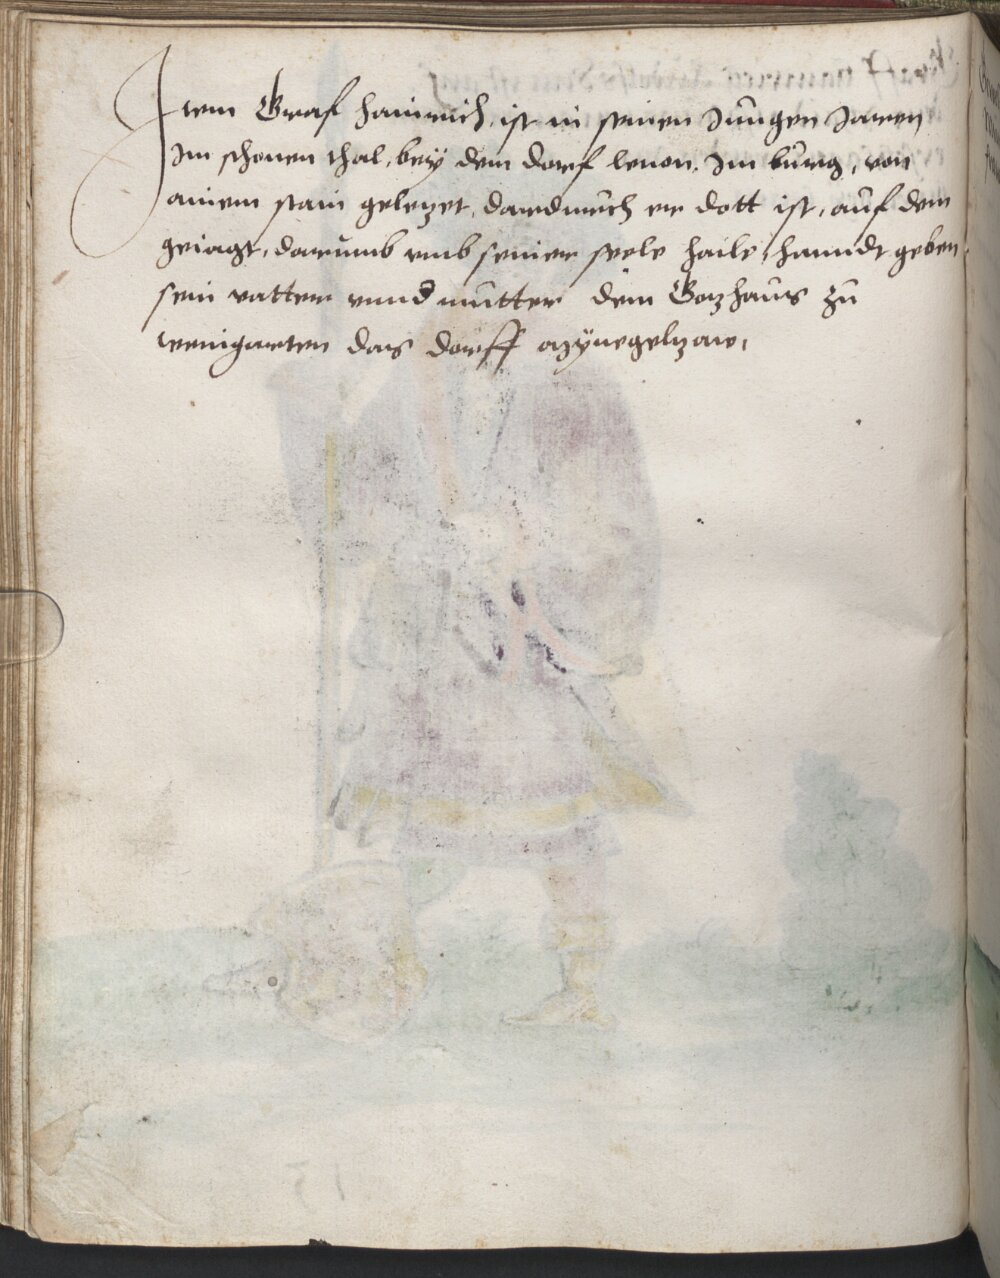 Item Graf hainrich, ist in seinen Jungen Jaren
Im schonen thal, bey dem dorf lenon, Im burg, von
ainem stain geletzet, dardurch er dott ist, auf dem
geiagt, darumb vmb seiner seele haile, hanndt geben
sein vatter vnnd mutter dem Gotzhaus zu
weingarten das dorff